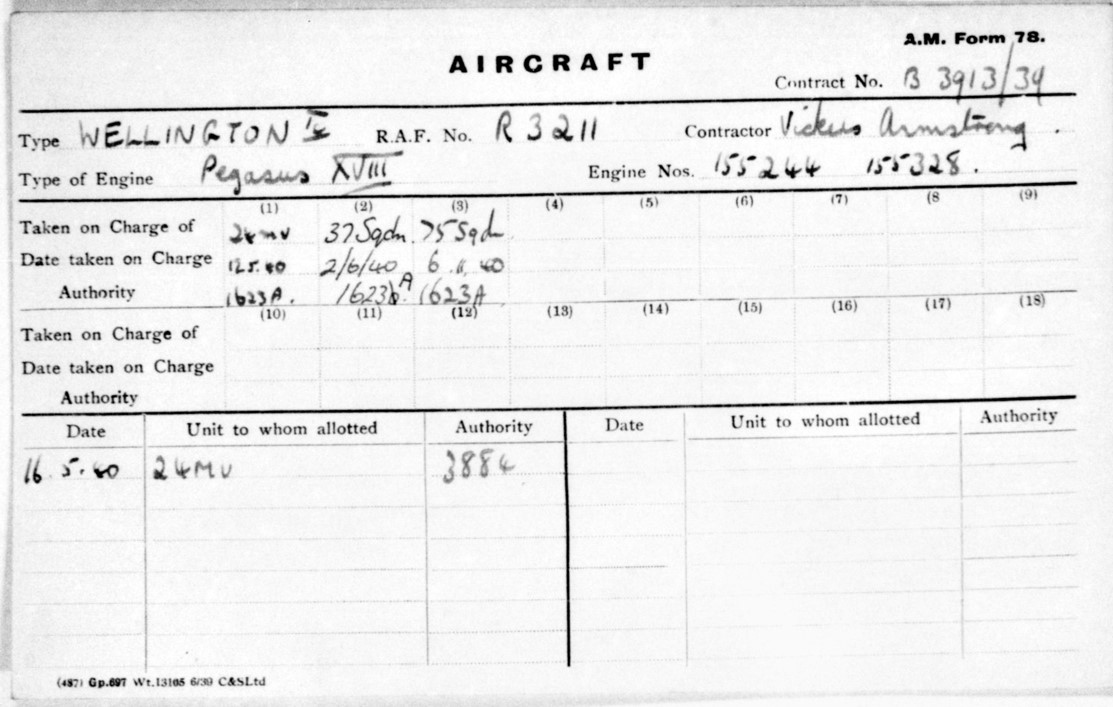 A.M. Form 78.
AIRCRAFT
Contract No. B 3913/39
Type WELLINGTON Ic R.A.F. No. R 3211 Contractor Vickers Armstrong.
Type of Engine Pegasus XVIII Engine Nos. 155244 155328.
(1) (2) (3) (4) (5) (6) (7) (8 (9)
Taken on Charge of 24 MU 37 Sqdn. 75 Sqdn
Date taken on Charge 12.5.40 2/6/40 6.11.40
Authority 1623A. 1623A 1623A
(10) (11) (12) (13) (14) (15) (16) (17) (18)
Taken on Charge of
Date taken on Charge
Authority
Date Unit to whom allotted Authority Date Unit to whom allotted Authority
16.5.40 24 MU 3884
(487) Gp.697 Wt.13105 6/39 C&SLtd